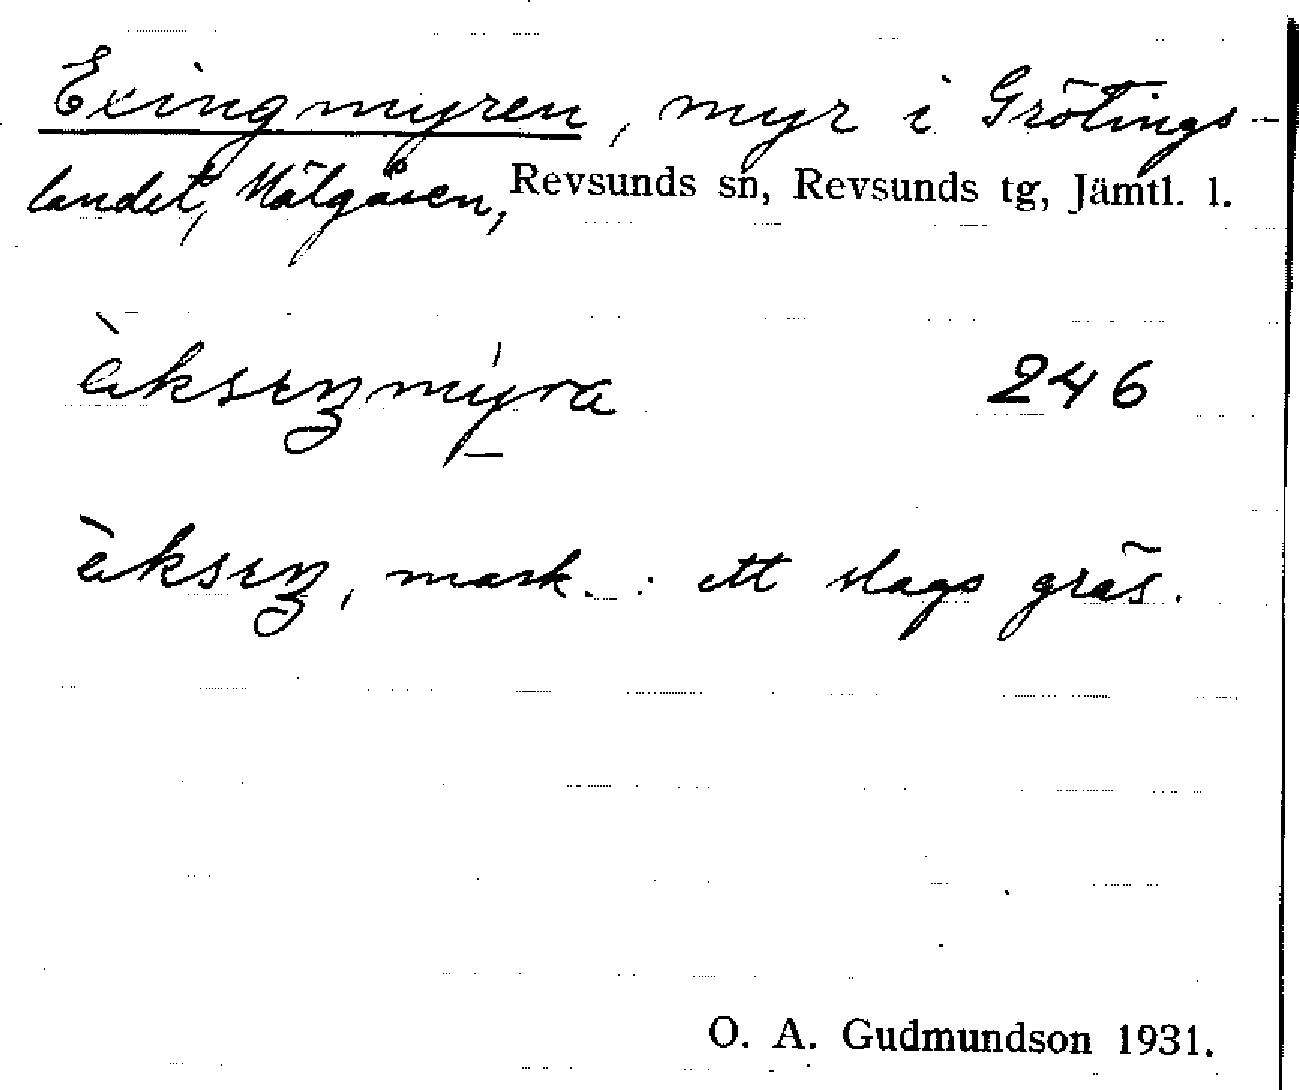 Exingmyren, myr i Grötings-
landet, Mälgåsen, Revsunds sn, Revsunds tg, Jämtl. l.
àksıŋmýra̱ 246
àksıŋ, mask. : ett slags gräs.
O. A. Gudmundson 1931.